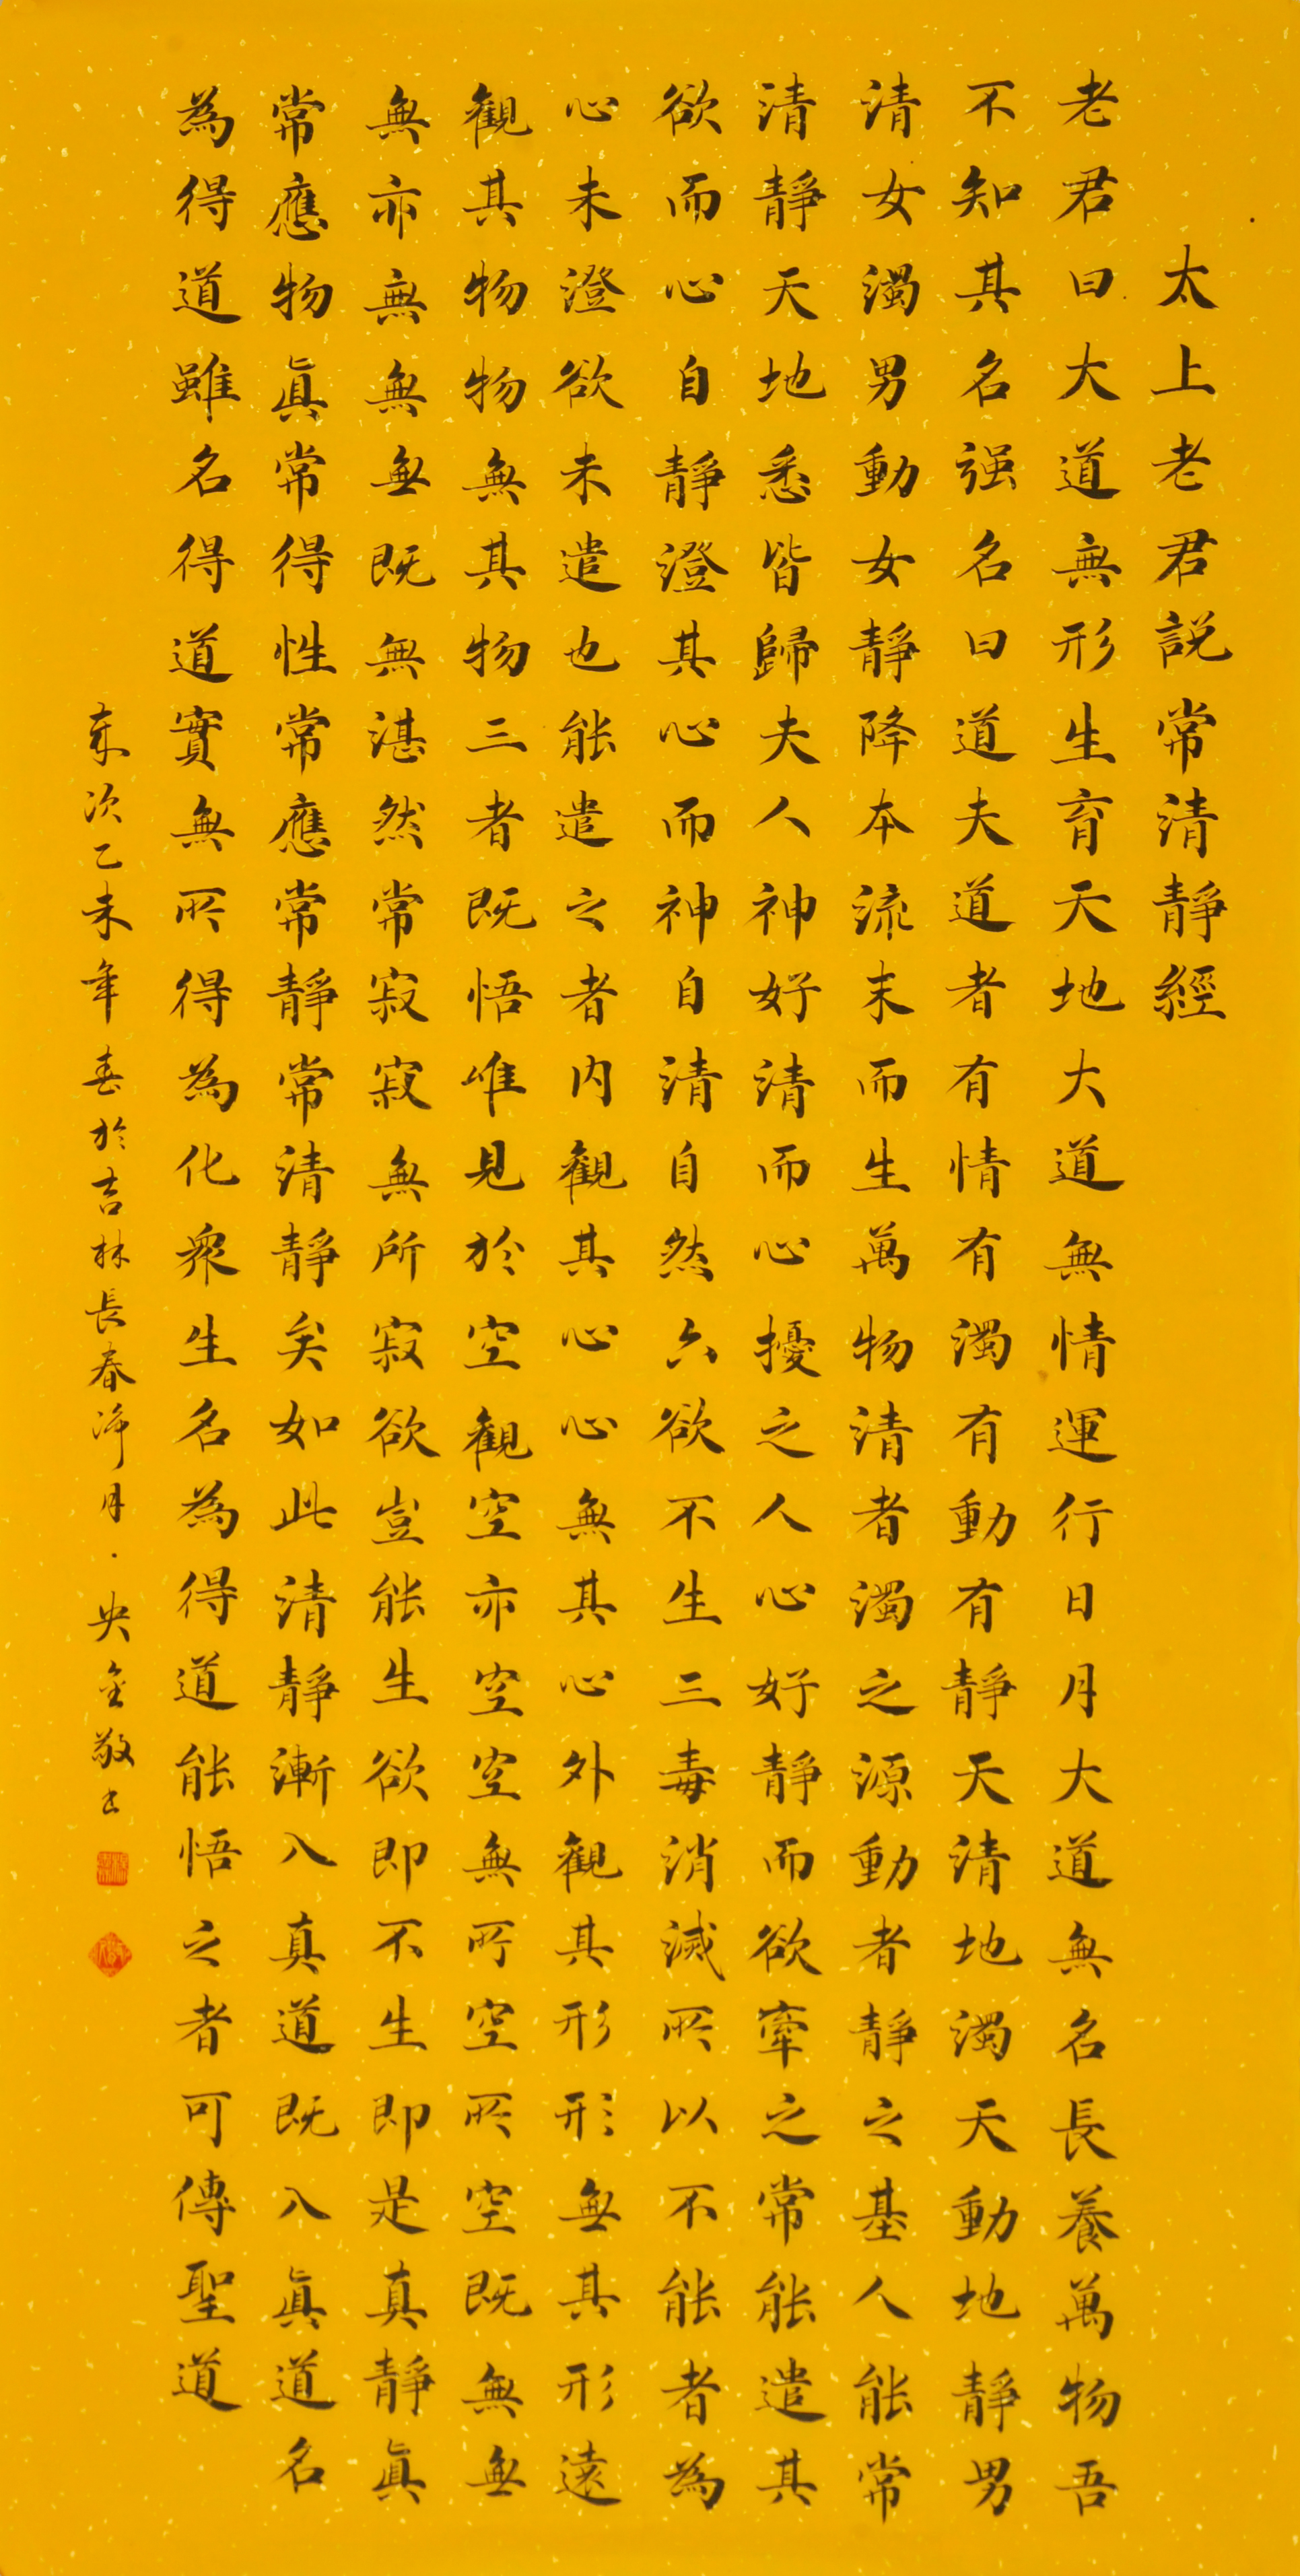 太上老君説常清靜經
老君曰大道無形生育天地大道無情運行日月大道無名長養萬物吾
不知其名强名曰道夫道者有情有濁有動有靜天清地濁天動地靜男
清女濁男動女靜降本流末而生萬物清者濁之源動者靜之基人能常
清靜天地悉皆歸夫人神好清而心擾之人心好靜而欲牽之常能遣其
欲而心自靜澄其心而神自清自然六欲不生三毒消滅所以不能者為
心未澄欲未遣也能遣之者内觀其心心無其心外觀其形形無其形遠
觀其物物無其物三者既悟唯見於空觀空亦空空無所空所空既無無
無亦無無無既無湛然常寂寂無所寂欲豈能生欲即不生即是真靜眞
常應物眞常得性常應常靜常清靜矣如此清靜漸入真道既入眞道名
為得道雖名得道實無所得為化衆生名為得道能悟之者可傳聖道
乙未年春於吉林長春淨月·央金敬書